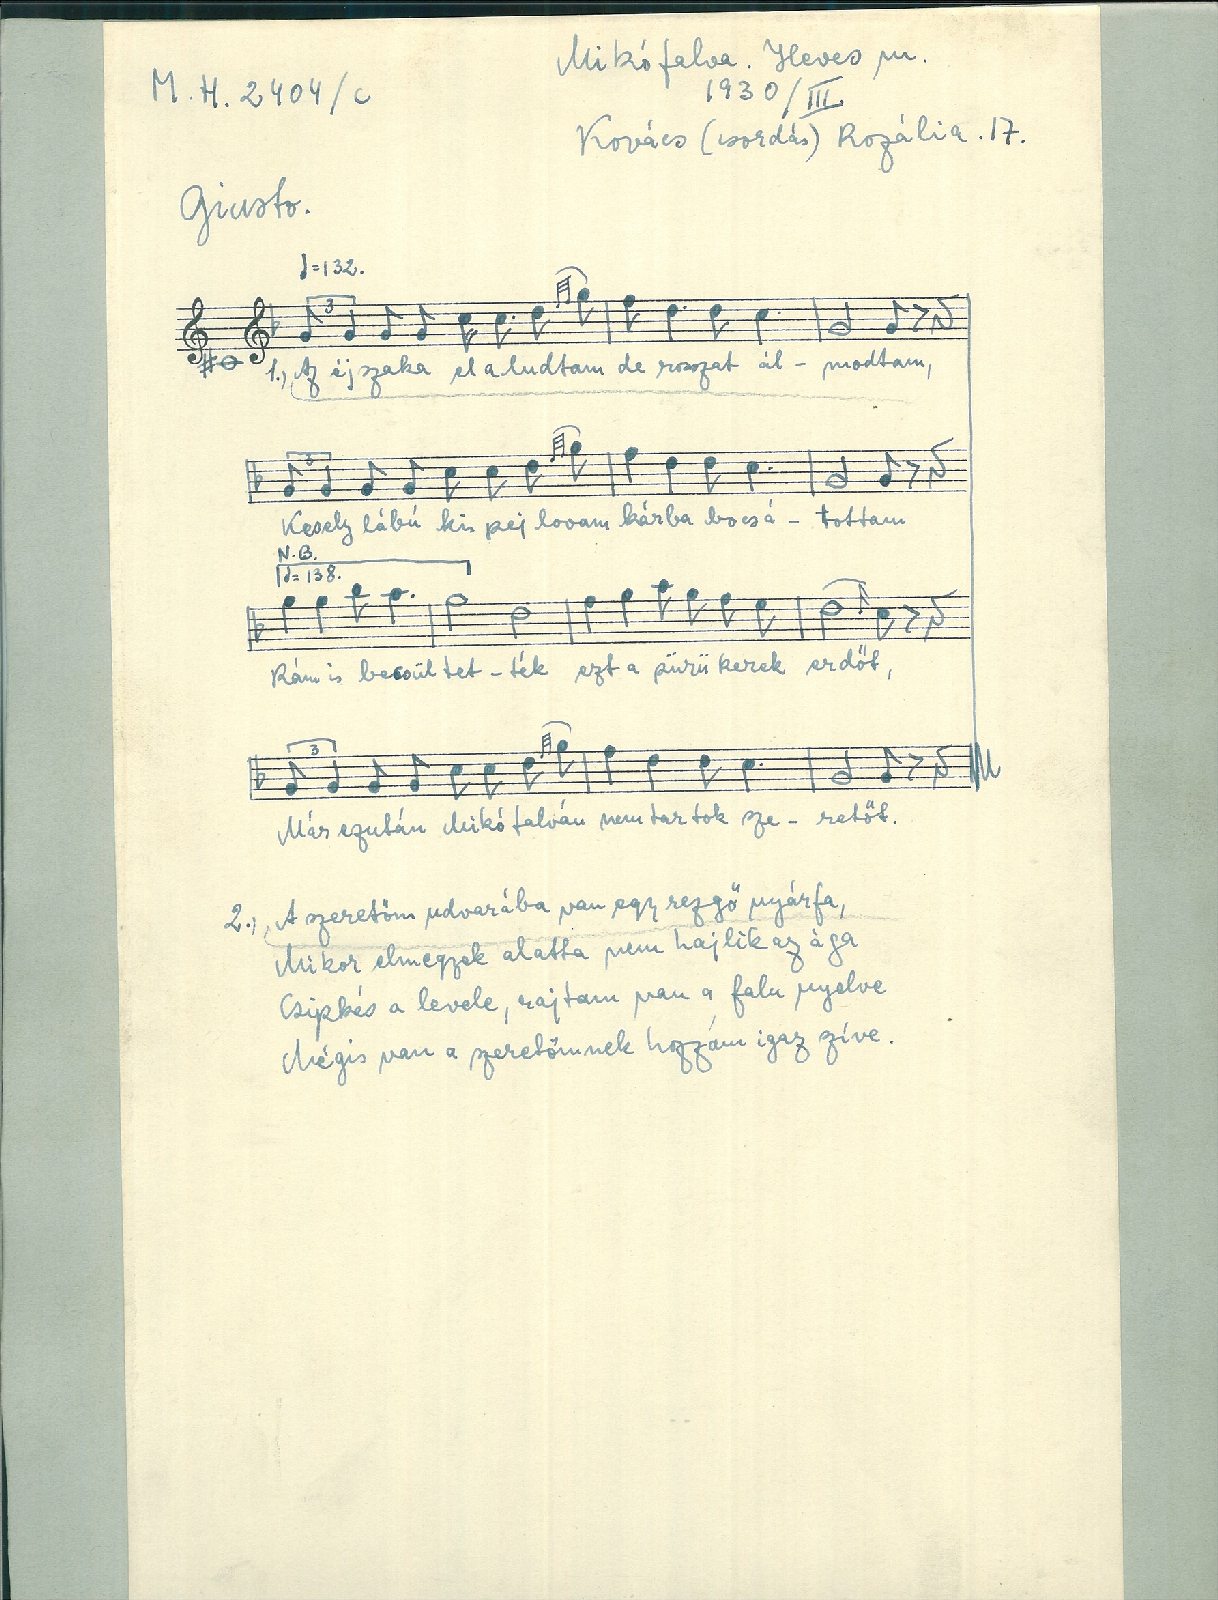 M.H. 2404/c
Mikófalva. Heves m.
1930/III
Kovács (csordás) Rozália. 17.
Giusto.
♩=132.
3
1., Az éjszaka elaludtam de rosszat ál- modtam,
3
Kesely lábú kis pej lovam kárba bocsá- tottam
N.B.
♩=138.
Rám is becsültet- ték ezt a sürü kerek erdőt,
3
Már ezután Mikófalván nem tartok sze- retőt.
2., A szeretőm udvarába van egy rezgő nyárfa,
Mikor elmegyek alatta nem hajlik az ága
Csipkés a levele, rajtam van a falu nyelve
Mégis van a szeretőmnek hozzám igaz szíve.